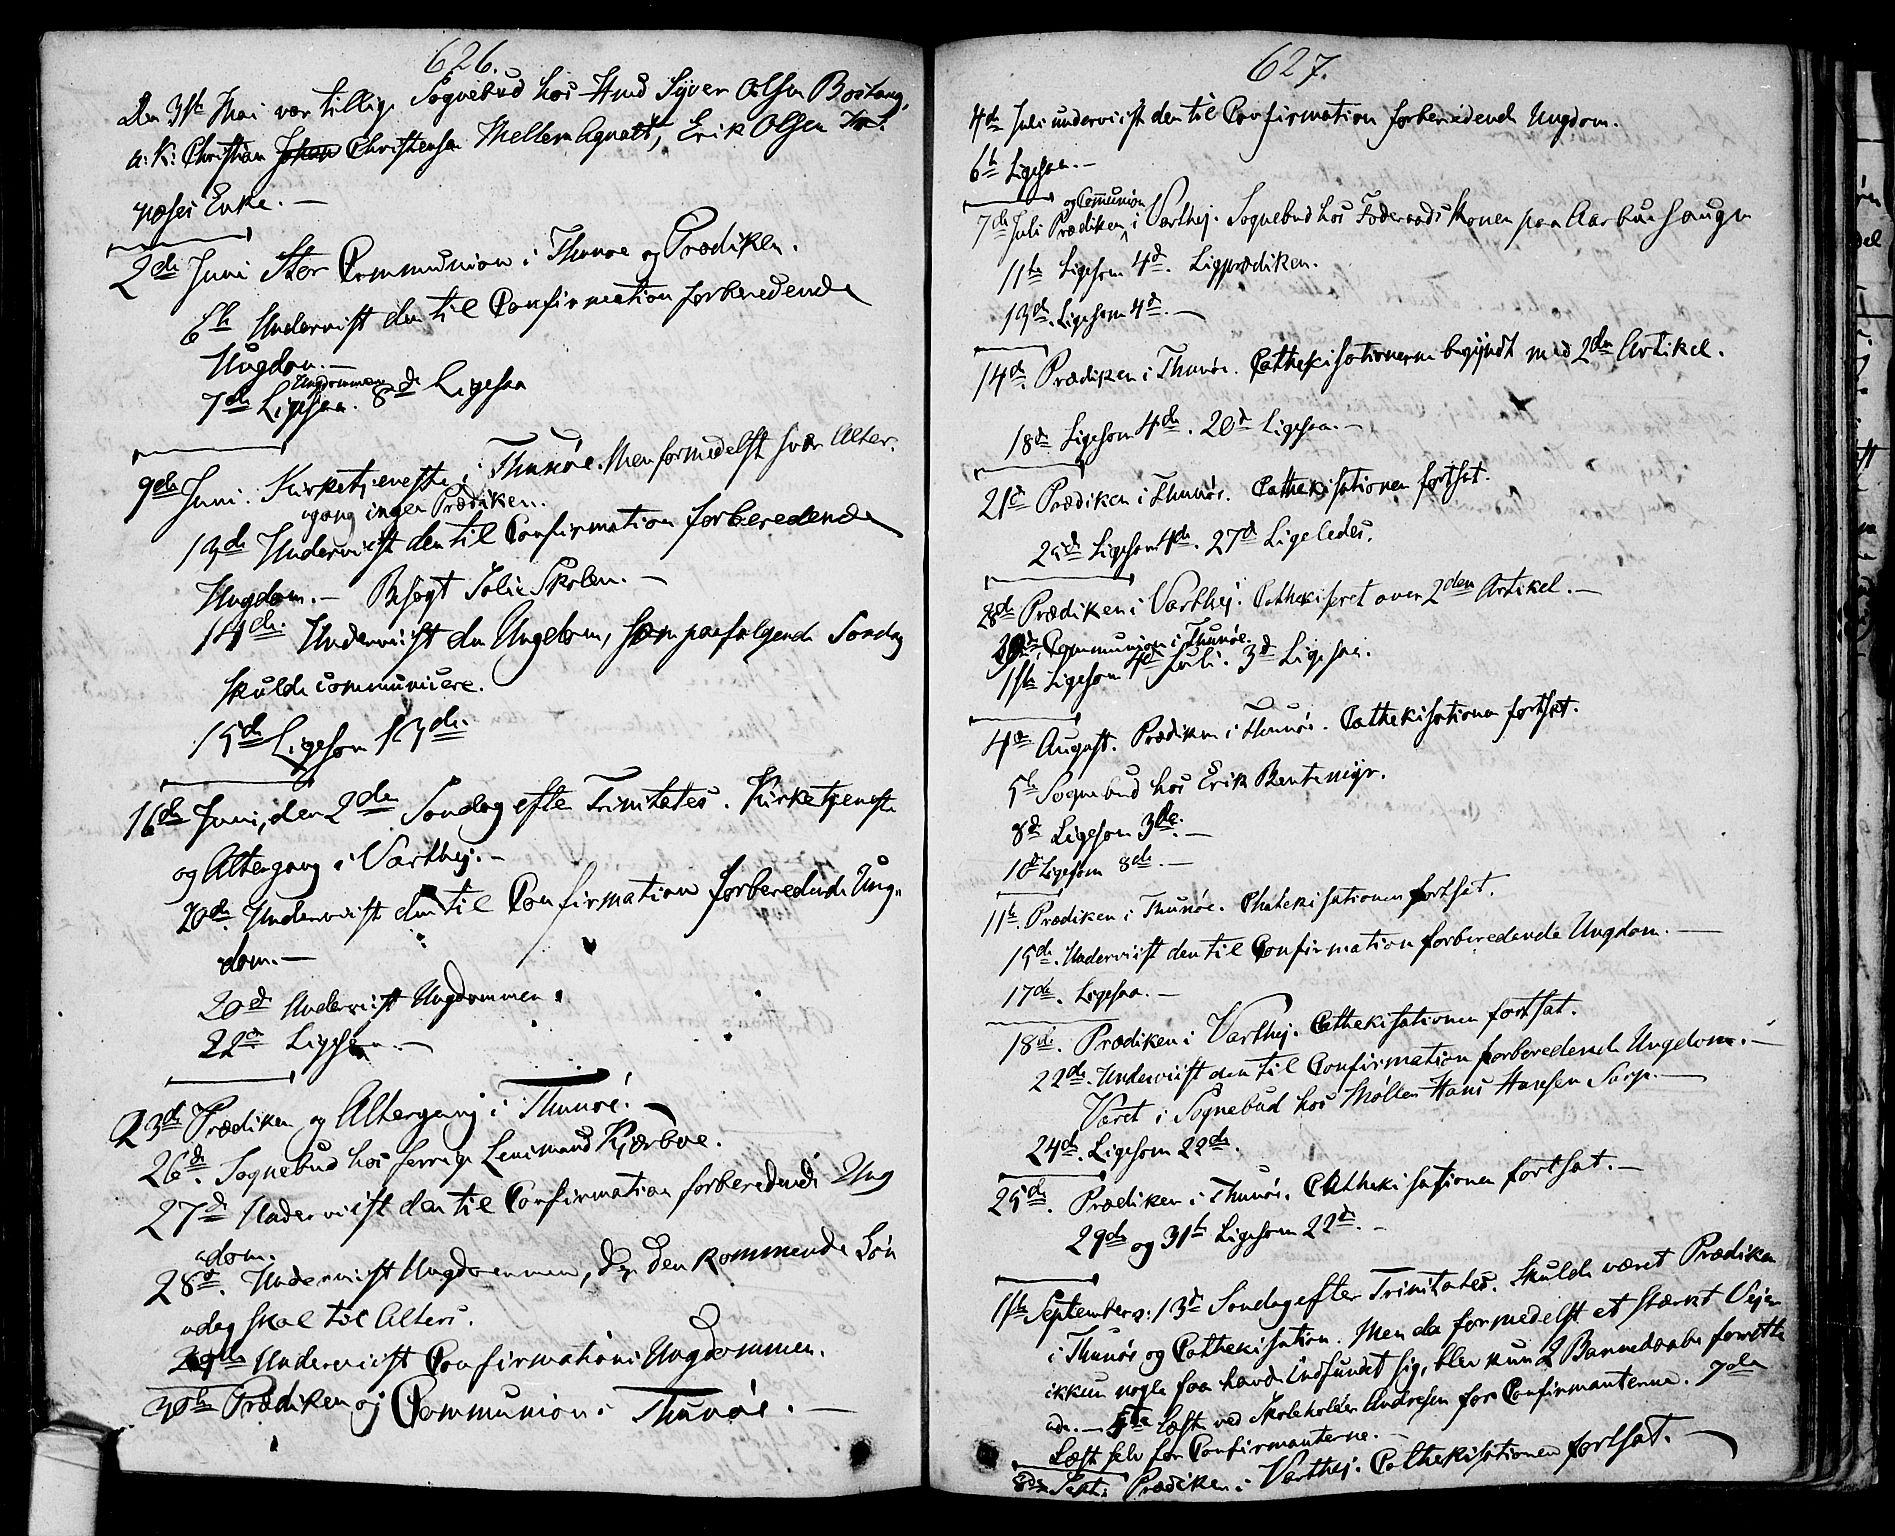 626.
Den 31te Mai var tillige Sognebud hos Hmd Syver Olsen Bostang,
a: K: Christian Johan Christensen Mellem Agnatt, Erik Olsen
næses Enke. —
2de Juni Stor Communion i Thunøe og Prædiken.
6te Underviist den til Confirmation forberedende
Ungdom. —
7de Ligesaa. Ungdommen 8de Ligesaa
9de Juni. Kirketjeneste i Thunøe. Men formedelst svær Alter-
gang ingen Prædiken.
13de Underviist den til Confirmation forberedende
Ungdom. — Besøgt Solie Skolen. —
14de. Underviist den Ungdom, som paafølgende Søndag
skulde communicere.
15de Ligesom 13de.
16de Juni, den 2den Søndag efter Trinitates. Kirketjeneste
og Altergang i Varthej. —
20de. Underviist den til Confirmation forberedende Ung-
dom. —
20de Underviist Ungdommen.
22de Ligesaa. —
23de Prædiken og Altergang i Thunøe. —
26de. Sognebud hos forrige Lensmand Kjærboe.
27de Underviist den til Confirmation forberedende Ung
dom.
28de. Underviist Ungdommen, der den kommende Søn
dag skal til Alters.
29de Underviist Confirmations Ungdommen.
30te Prædiken og Communion i Thunøe. —
627.
4de Juli underviist den til Confirmation forberedende Ungdom.
6te Ligesaa. —
7de Juli Prædiken og Communion i Varthej. Sognebud hos Foderaads Konen paa Aarbuehaugn
11te Ligesom 4de. Ligprædiken.
13de. Ligesom 4de. —
14de. Prædiken i Thunøe. Cathekisationerne begyndt med 2den Artikel.
18de Ligesom 4de. 20de Ligesaa. —
21de Prædiken i Thunøe. Cathekisationen fortsat.
25de Ligesom 4de. 27de Ligeledes.
28de Prædiken i Varthej. Cathekiseret over 2den Artikel. —
29de. Communion i Thunøe.
1ste Ligesom 4de Juli. 3de Ligesaa.
4de August. Prædiken i Thunøe. Cathekisationen fortsat.
5te Sognebud hos Erik Bentemyr.
8de Ligesom 3de. —
10de Ligesom 8de. —
11te. Prædiken i Thunøe. Chatekisationen fortsat.
15de. Underviist den til Confirmation forberedende Ungdom. —
17de. Ligesaa. —
18de. Prædiken i Varthej. Cathekisationen fortsat.
22de. Underviist den til Confirmation forberedende Ungdom. —
Været i Sognebud hos Møller Hans Hansen Sarp. —
24de. Ligesom 22de.
25de. Prædiken i Thunøe. Cathekisationen fortsat. —
29de og 31te Ligesom 22de. —
1ste September: 13de Søndag efter Trinitates. Skulde været Prædiken
i Thunøe og Cathekisation. Men da formedelst et stærkt Vejr
ikkun nogle faa havde indfundet sig, blev kun 2 Barnedaabe forrette
de. — 5te Læste ved Skoleholder Andresen for Confirmanterne. 7de
Læst selv for Confirmanterne. —
8de Sept: Prædiken i Varthej. Cathekisationen fortsat. —